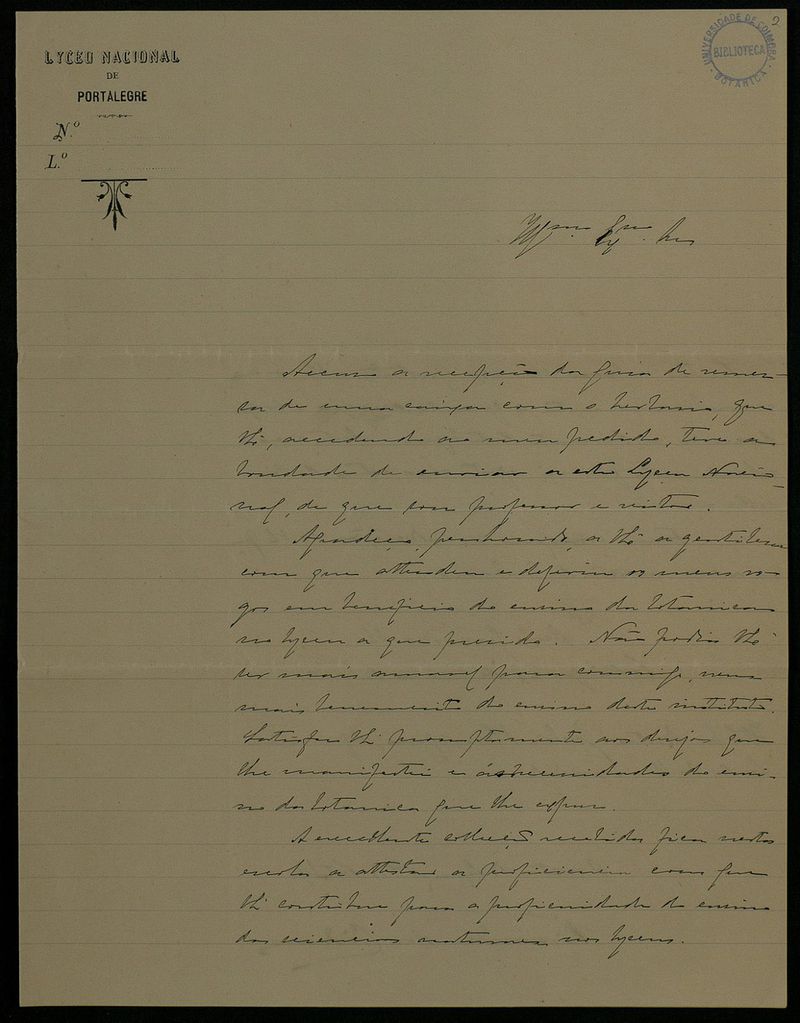 2
UNIVERSIDADE DE COIMBRA
BIBLIOTECA
BOTANICA
LYCEU NACIONAL
DE
PORTALEGRE
N.º
L.º
Illmo. Exmo. Snr.
Accuso a recepção da guia de remes-
sa de uma caixa com o herbario, que
V.E., accedendo ao meu pedido, teve a
bondade de enviar a este Lyceu Nacio-
nal, de que sou professor e reitor.
Agradeço, penhorado, a V.E. a gentileza
com que attendeu e deferiu os meus ro-
gos em beneficio do ensino da botanica
no lyceu a que presido. Não podia V.E.
ser mais amavel para commigo, nem
mais benemerito do ensino deste instituto.
Satisfez V.E. promptamente aos desejos que
lhe manifestei e ás necessidades do ensi-
no da botanica que lhe expuz.
A excellente collecção recebida fica nesta
escola a attestar a proficiencia com que
V.E. contribue para a proficuidade do ensino
das sciencias naturaes nos lyceus.